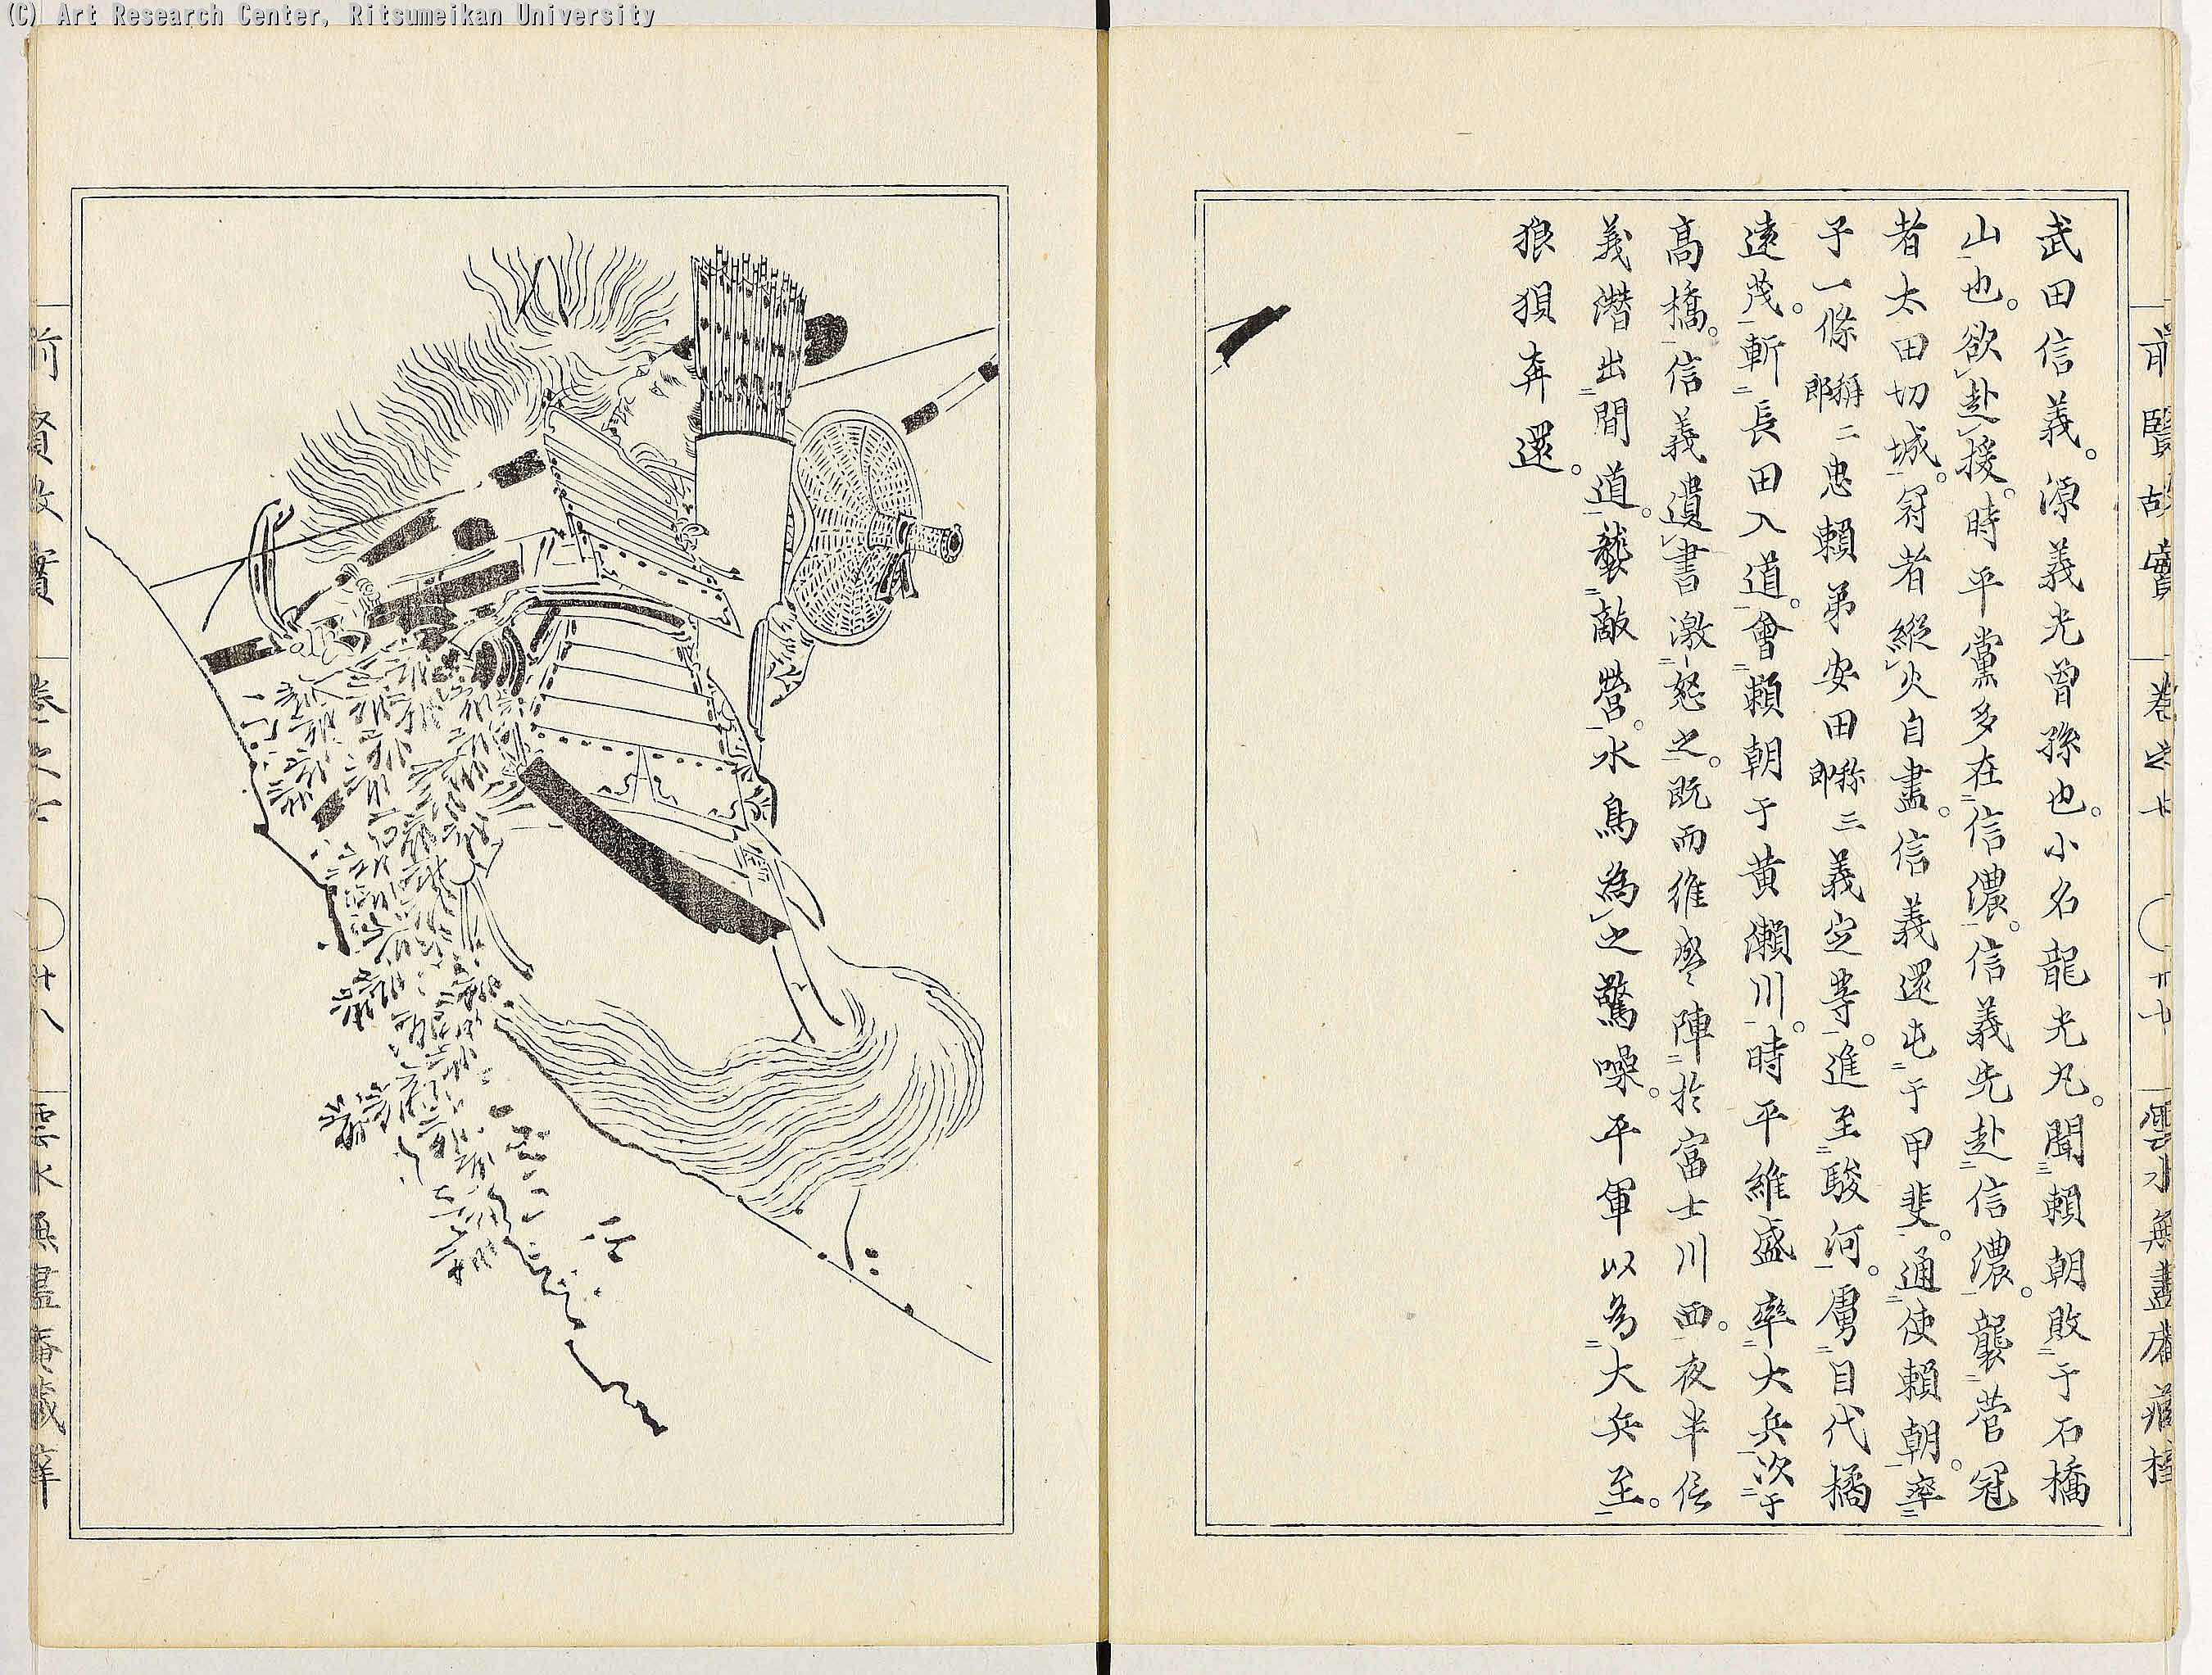 (C) Art Research Center, Ritsumeikan University
武田信義。源義光曽孫也。小名龍光丸。聞頼朝敗于石橋
山也。欲赴援。時平黨多在信濃。信義先赴信濃。襲菅冠
者太田切城。冠者縦火自盡。信義還屯于甲斐。通使頼朝。率
子一條稱二郎忠頼弟安田称三郎義定等。進至駿河。虜目代橘
遠茂。斬長田入道。會頼朝于黄瀬川。時平維盛率大兵次于
高橋。信義遺書激怒之。既而維盛陣於富士川西。夜半信
義潜出間道。襲敵營。水鳥為之驚噪。平軍以為大兵至。
狼狽奔還。
前賢故實
卷之七
雲水無盡庵蔵梓